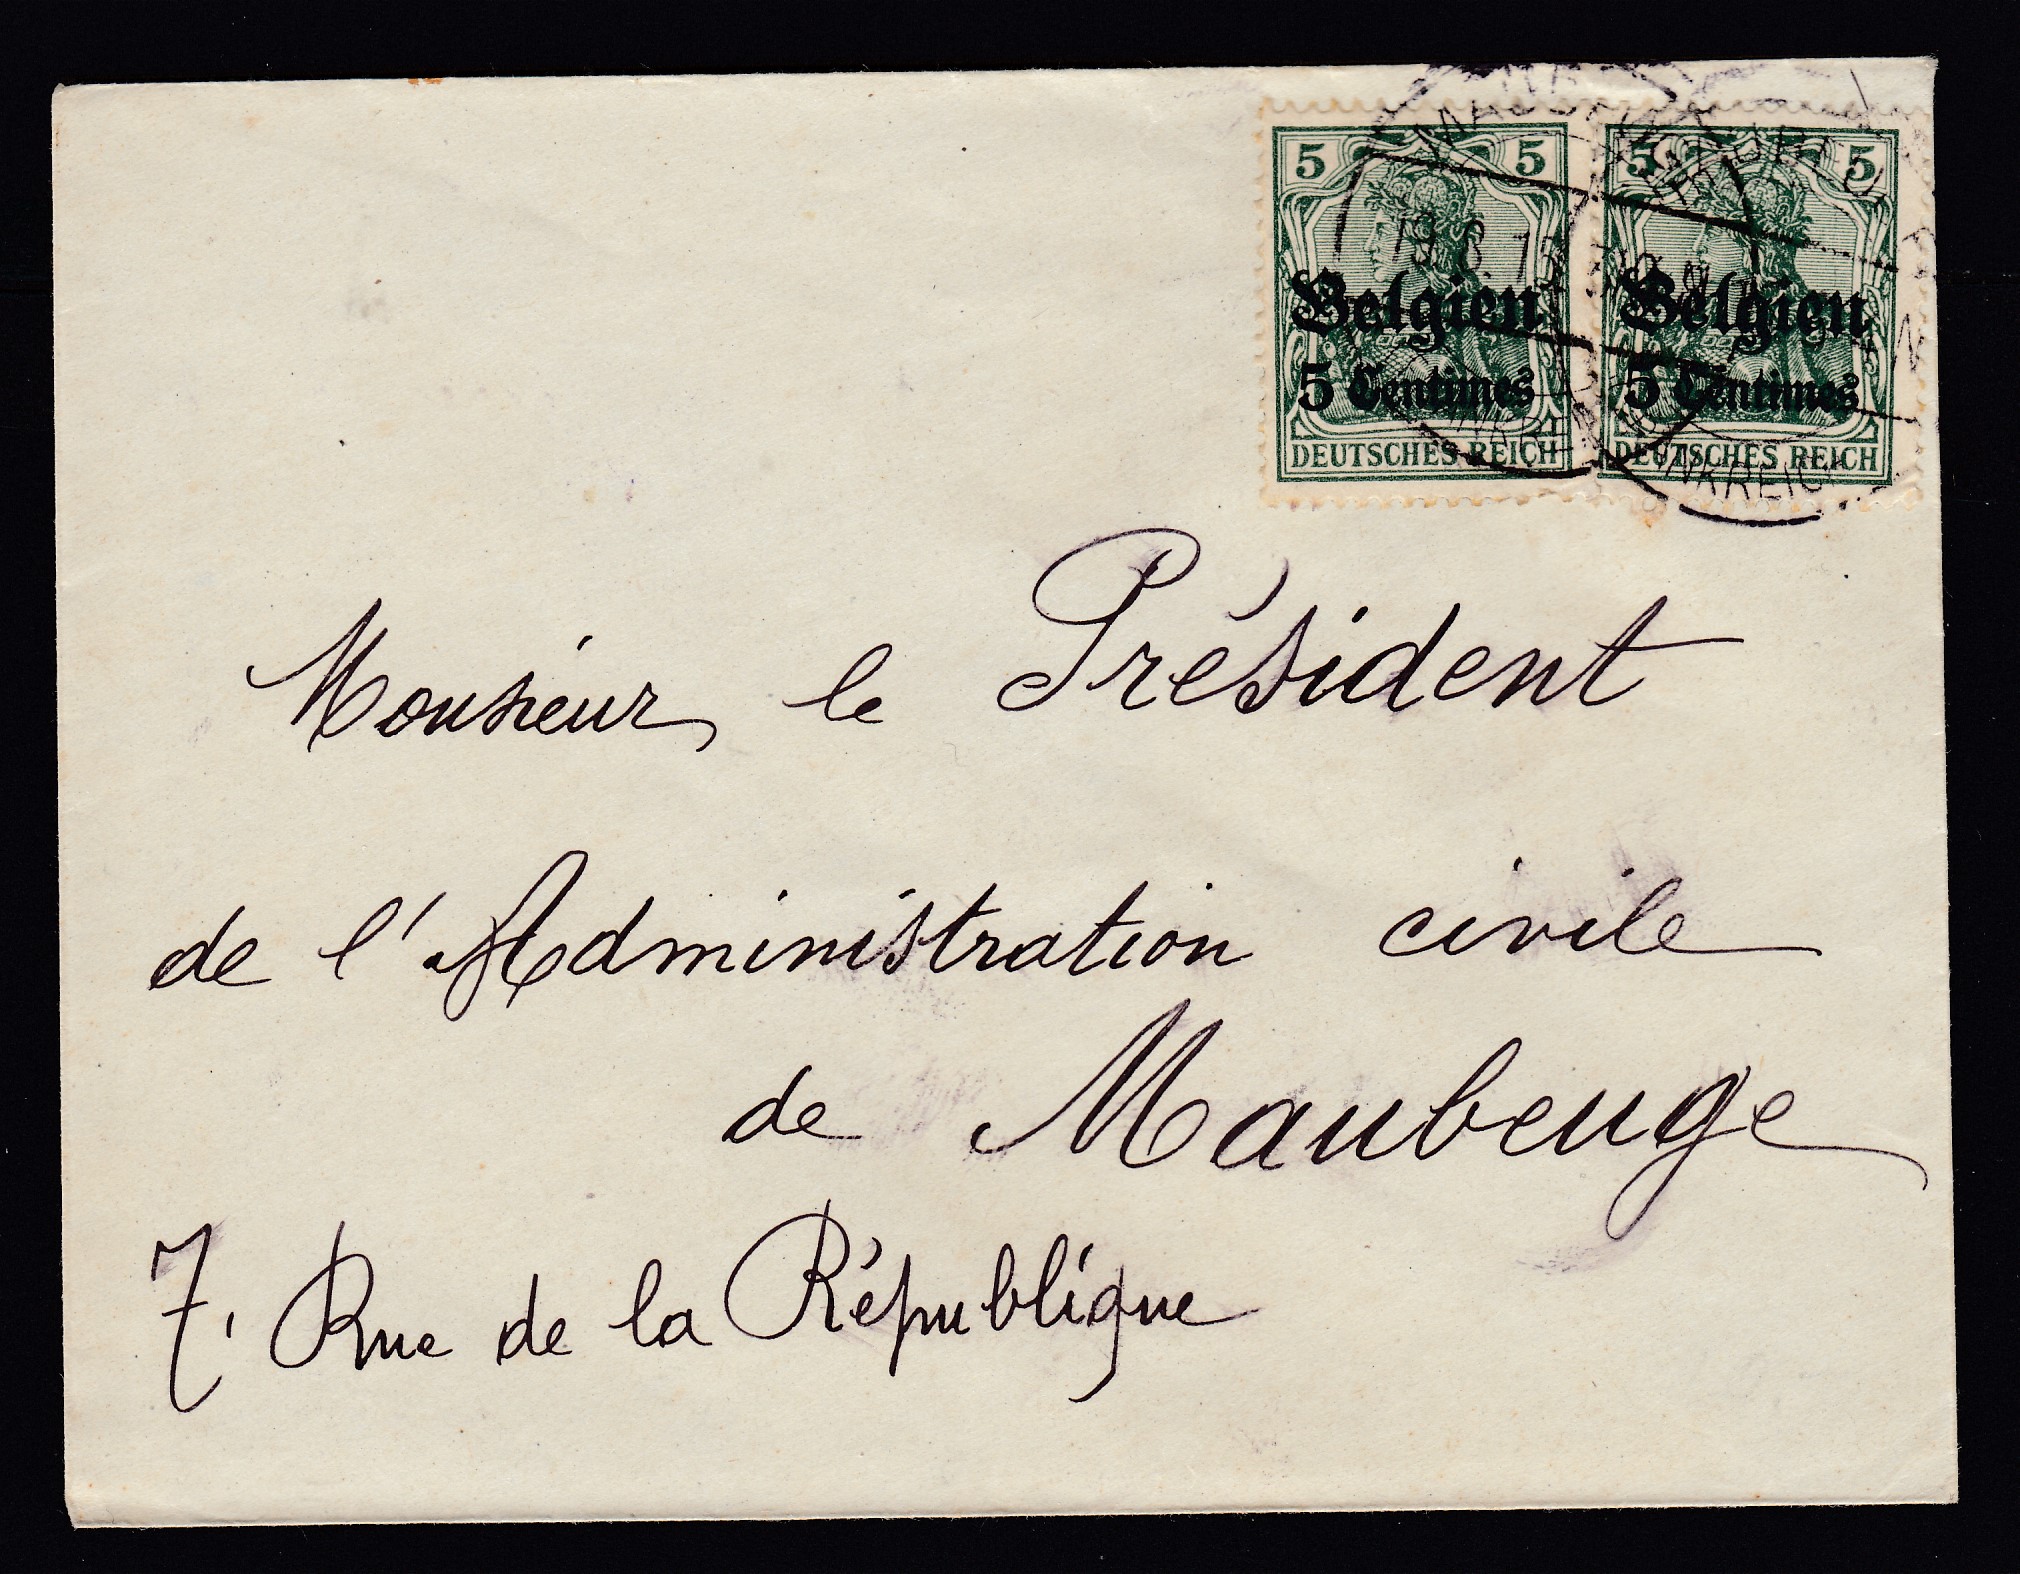 5 5 5 5
19.8.15
Belgien Belgien
5 Centimes 5 Centimes
DEUTSCHES REICH DEUTSCHES REICH
Monsieur le Président
de l'Administration civile
de Maubeuge
7, Rue de la République